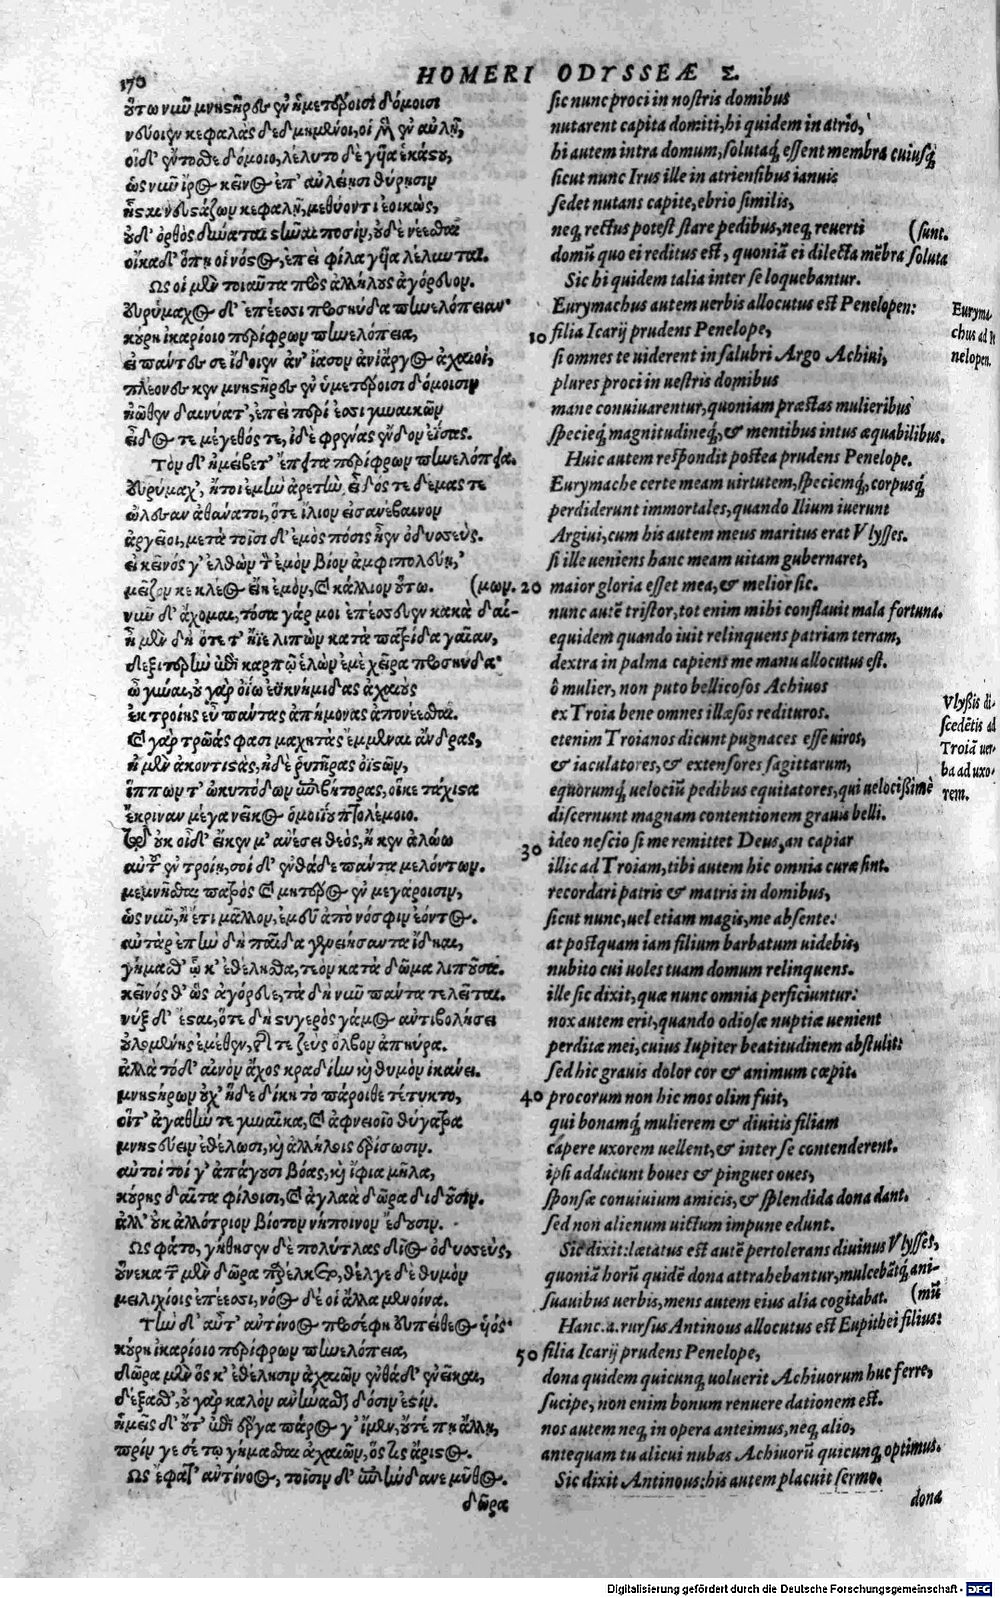 170
HOMERI ODYSSEÆ Σ.
οὕτω νῦν μνηστῆρες ἐν ἡμετέροισι δόμοισι
νεύοιεν κεφαλὰς δεδμημένοι, οἱ μὲν ἐν αὐλῇ,
οἱ δ' ἔντοσθε δόμοιο, λέλυτο δὲ γυῖα ἑκάστου,
ὡς νῦν ἶρος κεῖνος ἐπ' αὐλείῃσι θύρῃσιν
ἧσται νευστάζων κεφαλῇ, μεθύοντι ἐοικὼς,
οὐδ' ὀρθὸς δύναται στῆναι ποσὶν, οὐδὲ νέεσθαι
οἴκαδ' ὅπη οἱ νόστος, ἐπεὶ φίλα γυῖα λέλυνται.
Ως οἱ μὲν τοιαῦτα πρὸς ἀλλήλους ἀγόρευον.
Εὐρύμαχος δ' ἐπέεσσι προσηύδα πηνελόπειαν·
κούρη ἰκαρίοιο περίφρων πηνελόπεια,
εἰ πάντες σε ἴδοιεν ἀν' ἴασον ἄργος ἀχαιοὶ,
πλέονες κεν μνηστῆρες ἐν ὑμετέροισι δόμοισιν
ἠῶθεν δαινύατ', ἐπεὶ περί ἐσσι γυναικῶν
εἶδος τε μέγεθός τε, ἰδὲ φρένας ἔνδον ἐΐσας.
Τὸν δ' ἠμείβετ' ἔπειτα περίφρων πηνελόπεια.
Εὐρύμαχ', ἤτοι ἐμὴν ἀρετὴν εἶδός τε δέμας τε
ὤλεσαν ἀθάνατοι, ὅτε ἴλιον εἰσανέβαινον
ἀργεῖοι, μετὰ τοῖσι δ' ἐμὸς πόσις ᾖεν ὀδυσσεύς.
εἰ κεῖνός γ' ἐλθὼν τὸν ἐμὸν βίον ἀμφιπολεύοι,
μεῖζον κε κλέος εἴη ἐμὸν, καὶ κάλλιον οὕτω. (μων.
νῦν δ' ἄχομαι, τόσα γάρ μοι ἐπέσσευεν κακὰ δαί-
ἦ μὲν δὴ ὅτε τ' ἤϊε λιπὼν κατὰ πατρίδα γαῖαν,
δεξιτερὴν ἐπὶ καρπῷ ἑλὼν ἐμὲ χεῖρα προσηύδα·
ὦ γύναι, οὐ γὰρ ὀΐω ἐϋκνήμιδας ἀχαιοὺς
ἐκ τροίης εὖ πάντας ἀπήμονας ἀπονέεσθαι.
καὶ γὰρ τρῶάς φασι μαχητὰς ἔμμεναι ἄνδρας,
ἠ μὲν ἀκοντιστὰς, ἠδὲ ῥυτῆρας ὀϊστῶν,
ἵππων τ' ὠκυπόδων ἐπιβήτορας, οἵκε τάχιστα
ἔκριναν μέγα νεῖκος ὁμοιΐου πτολέμοιο.
τῷ οὐκ οἶδ' εἴκεν μ' ἀνέσει θεὸς, ἤ κεν ἁλώω
αὐτοῦ ἐν τροίῃ, σοὶ δ' ἐνθάδε πάντα μελόντων.
μεμνῆσθαι πατρὸς καὶ μητέρος ἐν μεγάροισιν,
ὡς νῦν, ἢ ἔτι μᾶλλον, ἐμεῦ ἀπὸ νόσφιν ἐόντος.
αὐτὰρ ἐπὴν δὴ παῖδα γενειήσαντα ἴδηαι,
γήμασθ' ᾧ κ' ἐθέλησθα, τεὸν κατὰ δῶμα λιποῦσα.
κεῖνός θ' ὣς ἀγόρευε, τὰ δὴ νῦν πάντα τελεῖται.
νὺξ δ' ἔσται, ὅτε δὴ στυγερὸς γάμος ἀντιβολήσει
οὐλομένης ἐμέθεν, τῆς τε ζεὺς ὄλβον ἀπηύρα.
ἀλλὰ τόδ' αἰνὸν ἄχος κραδίην καὶ θυμὸν ἱκάνει.
μνηστήρων οὐχ' ἥδε δίκη τὸ πάροιθε τέτυκτο,
οἵτ' ἀγαθήν τε γυναῖκα, καὶ ἀφνειοῖο θύγατρα
μνηστεύειν ἐθέλωσι, καὶ ἀλλήλοις ἐρίσωσιν.
αὐτοὶ τοί γ' ἀπάγουσι βόας, καὶ ἴφια μῆλα,
κούρης δαῖτα φίλοισι, καὶ ἀγλαὰ δῶρα διδοῦσιν.
ἀλλ' οὐκ ἀλλότριον βίοτον νήποινον ἔδουσιν.
Ως φάτο, γήθησεν δὲ πολύτλας δῖος ὀδυσσεὺς,
οὕνεκα τῶν μὲν δῶρα παρέλκετο, θέλγε δὲ θυμὸν
μειλιχίοις ἐπέεσσι, νόος δέ οἱ ἄλλα μενοίνα.
Τὴν δ' αὖτ' ἀντίνοος προσέφη εὐπείθεος υἱός·
κούρη ἰκαρίοιο περίφρων πηνελόπεια,
δῶρα μὲν ὅς κ' ἐθέλησιν ἀχαιῶν ἐνθάδ' ἐνεῖκαι,
δέξασθ', οὐ γὰρ καλὸν ἀνήνασθαι δόσιν ἐστίν.
ἡμεῖς δ' οὔτ' ἐπὶ ἔργα πάρος γ' ἴμεν, οὔτέ πη ἄλλῃ,
πρίν γε σέ τῳ γήμασθαι ἀχαιῶν, ὅς τις ἄριστος.
Ως ἔφατ' ἀντίνοος, τοῖσιν δ' ἐπιήνδανε μῦθος.
δῶρα
sic nunc proci in nostris domibus
nutarent capita domiti, hi quidem in atrio,
hi autem intra domum, solutaq́; essent membra cuiusq́;
sicut nunc Irus ille in atriensibus ianuis
sedet nutans capite, ebrio similis,
neq; rectus potest stare pedibus, neq; reuerti (sunt.
domũ quo ei reditus est, quoniã ei dilecta mẽbra soluta
Sic hi quidem talia inter se loquebantur.
Eurymachus autem uerbis allocutus est Penelopen:
10 filia Icarij prudens Penelope,
si omnes te uiderent in salubri Argo Achiui,
plures proci in uestris domibus
mane conuiuarentur, quoniam præstas mulieribus
specieq́; magnitudineq́;, & mentibus intus æquabilibus.
Huic autem respondit postea prudens Penelope.
Eurymache certe meam uirtutem, speciemq́;, corpusq́;
perdiderunt immortales, quando Ilium iuerunt
Argiui, cum his autem meus maritus erat Vlysses.
si ille ueniens hanc meam uitam gubernaret,
20 maior gloria esset mea, & melior sic.
nunc autẽ tristor, tot enim mihi conflauit mala fortuna.
equidem quando iuit relinquens patriam terram,
dextra in palma capiens me manu allocutus est.
ô mulier, non puto bellicosos Achiuos
ex Troia bene omnes illæsos redituros.
etenim Troianos dicunt pugnaces esse uiros,
& iaculatores, & extensores sagittarum,
equorumq́; uelociũ pedibus equitatores, qui uelocißimè
discernunt magnam contentionem grauis belli.
30 ideo nescio si me remittet Deus, an capiar
illic ad Troiam, tibi autem hic omnia curæ sint.
recordari patris & matris in domibus,
sicut nunc, uel etiam magis, me absente:
at postquam iam filium barbatum uidebis,
nubito cui uoles tuam domum relinquens.
ille sic dixit, quæ nunc omnia perficiuntur:
nox autem erit, quando odiosæ nuptiæ uenient
perditæ mei, cuius Iupiter beatitudinem abstulit:
sed hic grauis dolor cor & animum cœpit.
40 procorum non hic mos olim fuit,
qui bonamq́; mulierem & diuitis filiam
cápere uxorem uellent, & inter se contenderent.
ipsi adducunt boues & pingues oues,
sponsæ conuiuium amicis, & splendida dona dant.
sed non alienum uictum impune edunt.
Sic dixit: lætatus est autẽ pertolerans diuinus Vlysses,
quoniã horũ quidẽ dona attrahebantur, mulcebãtq́; ani-
suauibus uerbis, mens autem eius alia cogitabat. (mũ
Hanc .a. rursus Antinous allocutus est Eupithei filius:
50 filia Icarij prudens Penelope,
dona quidem quicunq; uoluerit Achiuorum huc ferre,
sucipe, non enim bonum renuere dationem est.
nos autem neq; in opera anteimus, neq; alio,
antequam tu alicui nubas Achiuorũ quicunq; optimus.
Sic dixit Antinous: his autem placuit sermo.
dona
Euryma
chus ad
nelopen.
Vlyßis di-
scedẽtis ad
Troiã uer-
ba ad uxo-
rem.
Digitalisierung gefördert durch die Deutsche Forschungsgemeinschaft - DFG